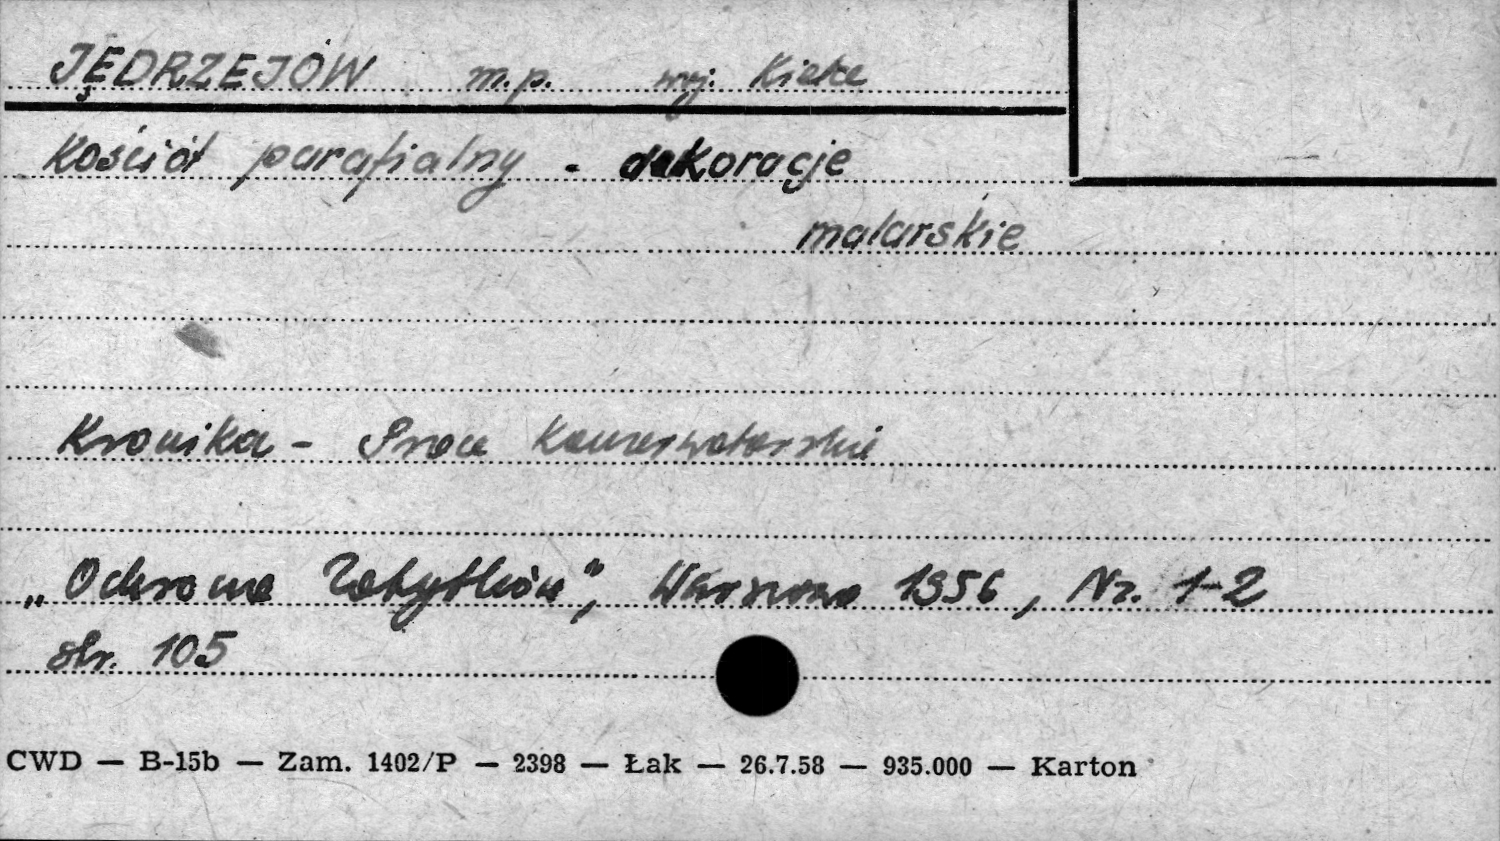 JĘDRZEJÓW m.p. woj. Kielce
Kościół parafialny - dekoracje
malarskie
Kronika - Prace konserwatorskie
„Ochrona Zabytków", Warszawa 1956, Nr. 1-2
str. 105
CWD — B-15b — Zam. 1402/P — 2398 — Łak — 26.7.58 — 935.000 — Karton